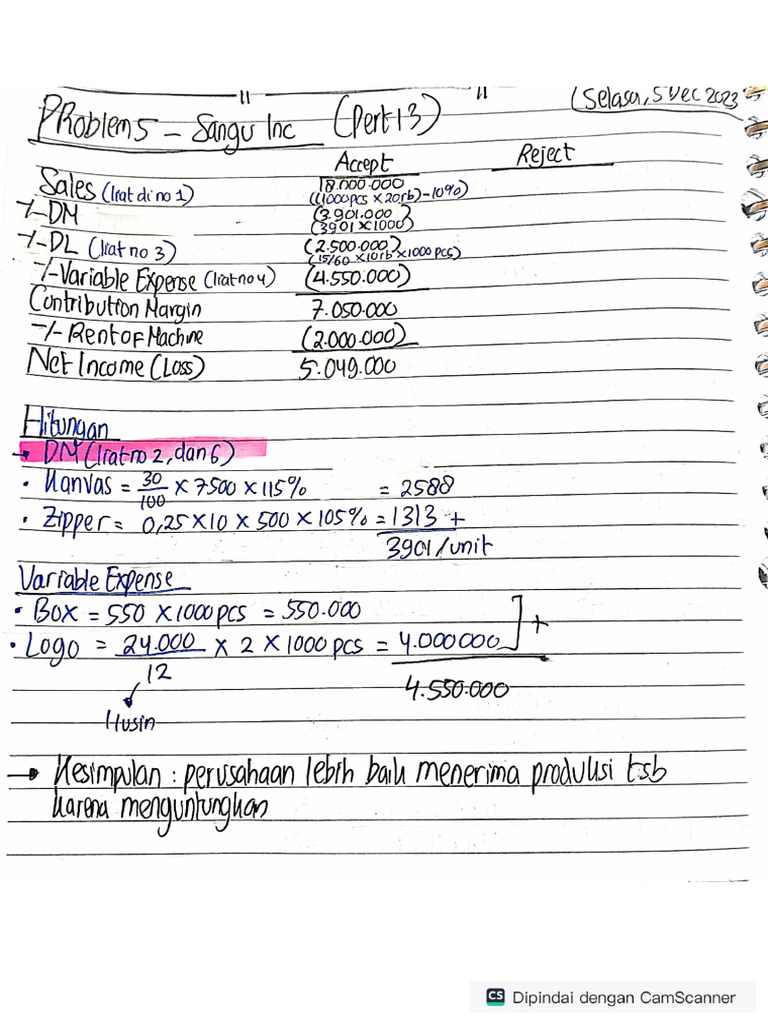 (Selasa, 5 Dec 2023
Problem 5 – Sangu Inc (Pert 13)
Accept Reject
Sales (liat di no 1) 18.000.000
((1000pcs x 20rb) – 10%)
-/- DM (3.901.000)
(3901 x 1000)
-/- DL (liat no 3) (2.500.000)
(15/60 x 10rb x 1000 pcs)
-/- Variable Expense (liat no 4) (4.550.000)
Contribution Margin 7.050.000
-/- Rent of Machine (2.000.000)
Net Income (Loss) 5.049.000
Hitungan
→ DM (liat no 2, dan 6)
• Kanvas = 30/100 x 7500 x 115% = 2588
• Zipper = 0,25 x 10 x 500 x 105% = 1313 +
3901/unit
Variable Expense
• Box = 550 x 1000 pcs = 550.000
• Logo = 24.000/12 x 2 x 1000 pcs = 4.000000 ] +
4.550.000
lusin
→ Kesimpulan : perusahaan lebih baik menerima produksi tsb
karena menguntungkan
CS Dipindai dengan CamScanner